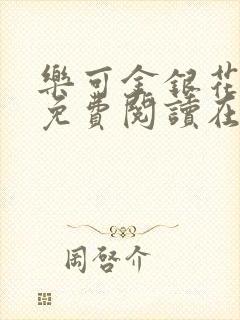 樂可金銀花
免費閱讀在
周啓介